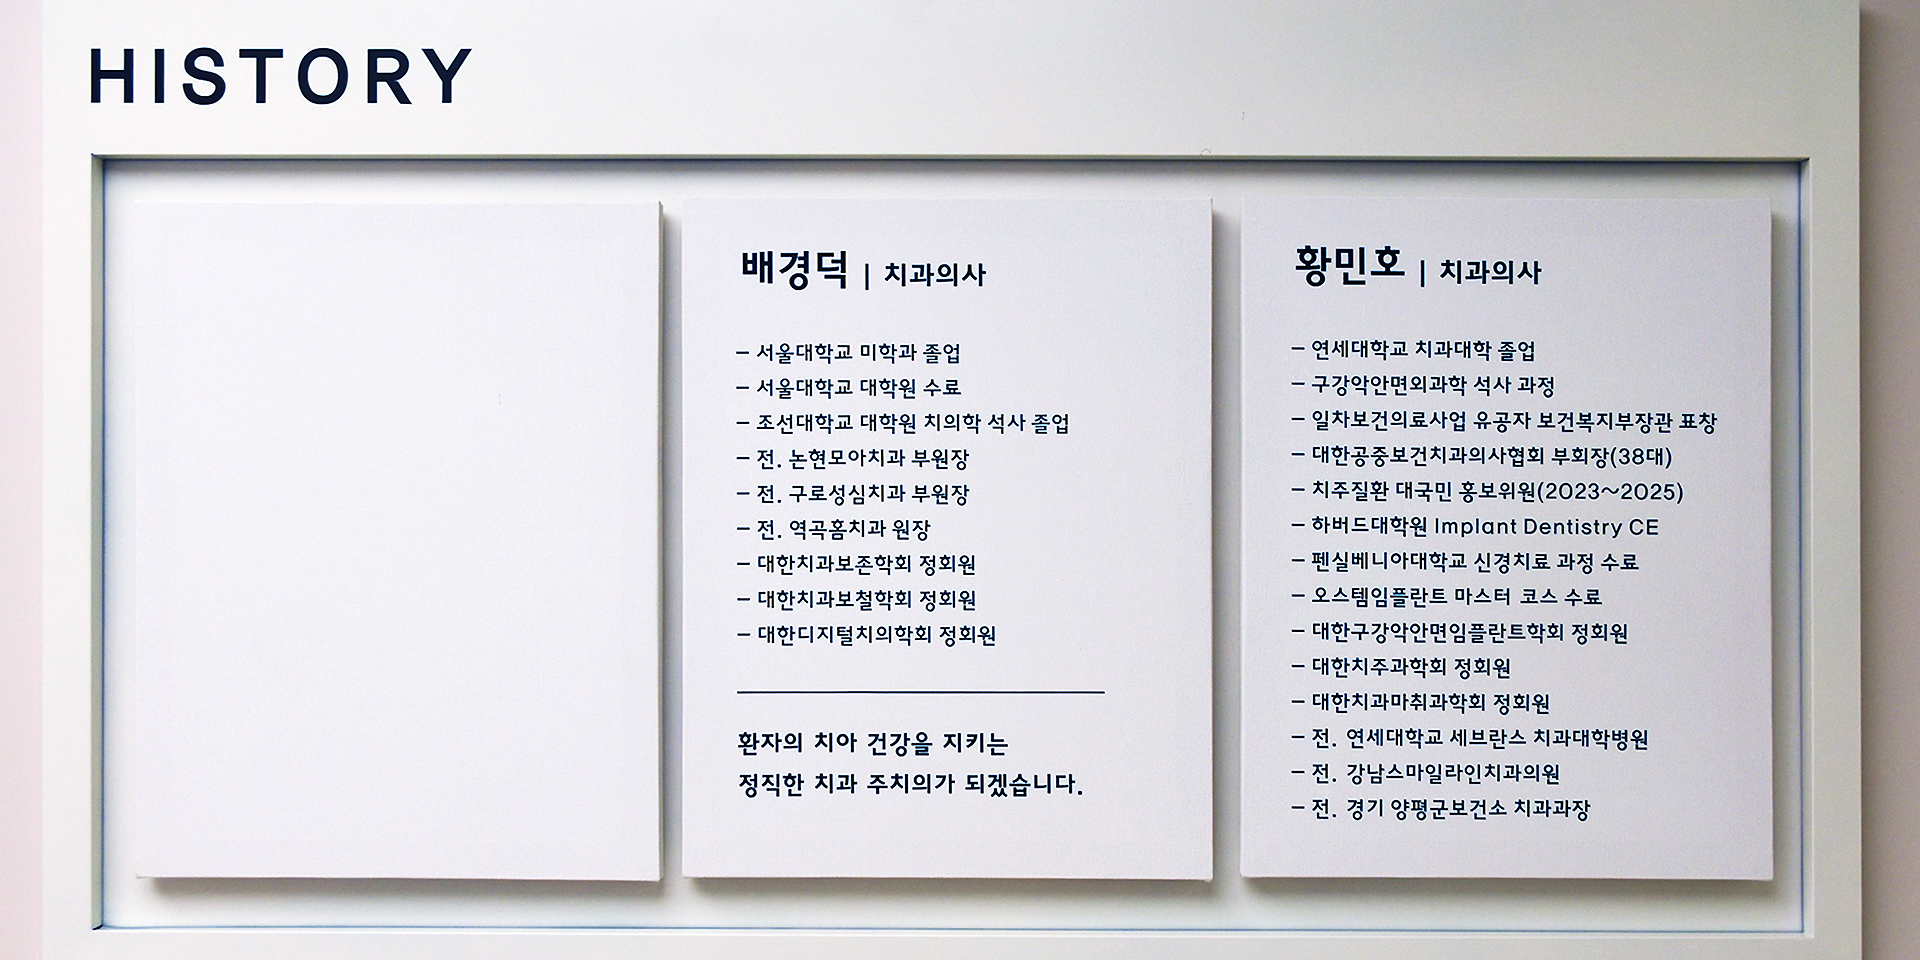 HISTORY
배경덕 | 치과의사
– 서울대학교 미학과 졸업
– 서울대학교 대학원 수료
– 조선대학교 대학원 치의학 석사 졸업
– 전. 논현모아치과 부원장
– 전. 구로성심치과 부원장
– 전. 역곡홈치과 원장
– 대한치과보존학회 정회원
– 대한치과보철학회 정회원
– 대한디지털치의학회 정회원
환자의 치아 건강을 지키는
정직한 치과 주치의가 되겠습니다.
황민호 | 치과의사
– 연세대학교 치과대학 졸업
– 구강악안면외과학 석사 과정
– 일차보건의료사업 유공자 보건복지부장관 표창
– 대한공중보건치과의사협회 부회장(38대)
– 치주질환 대국민 홍보위원(2023~2025)
– 하버드대학원 Implant Dentistry CE
– 펜실베니아대학교 신경치료 과정 수료
– 오스템임플란트 마스터 코스 수료
– 대한구강악안면임플란트학회 정회원
– 대한치주과학회 정회원
– 대한치과마취과학회 정회원
– 전. 연세대학교 세브란스 치과대학병원
– 전. 강남스마일라인치과의원
– 전. 경기 양평군보건소 치과과장